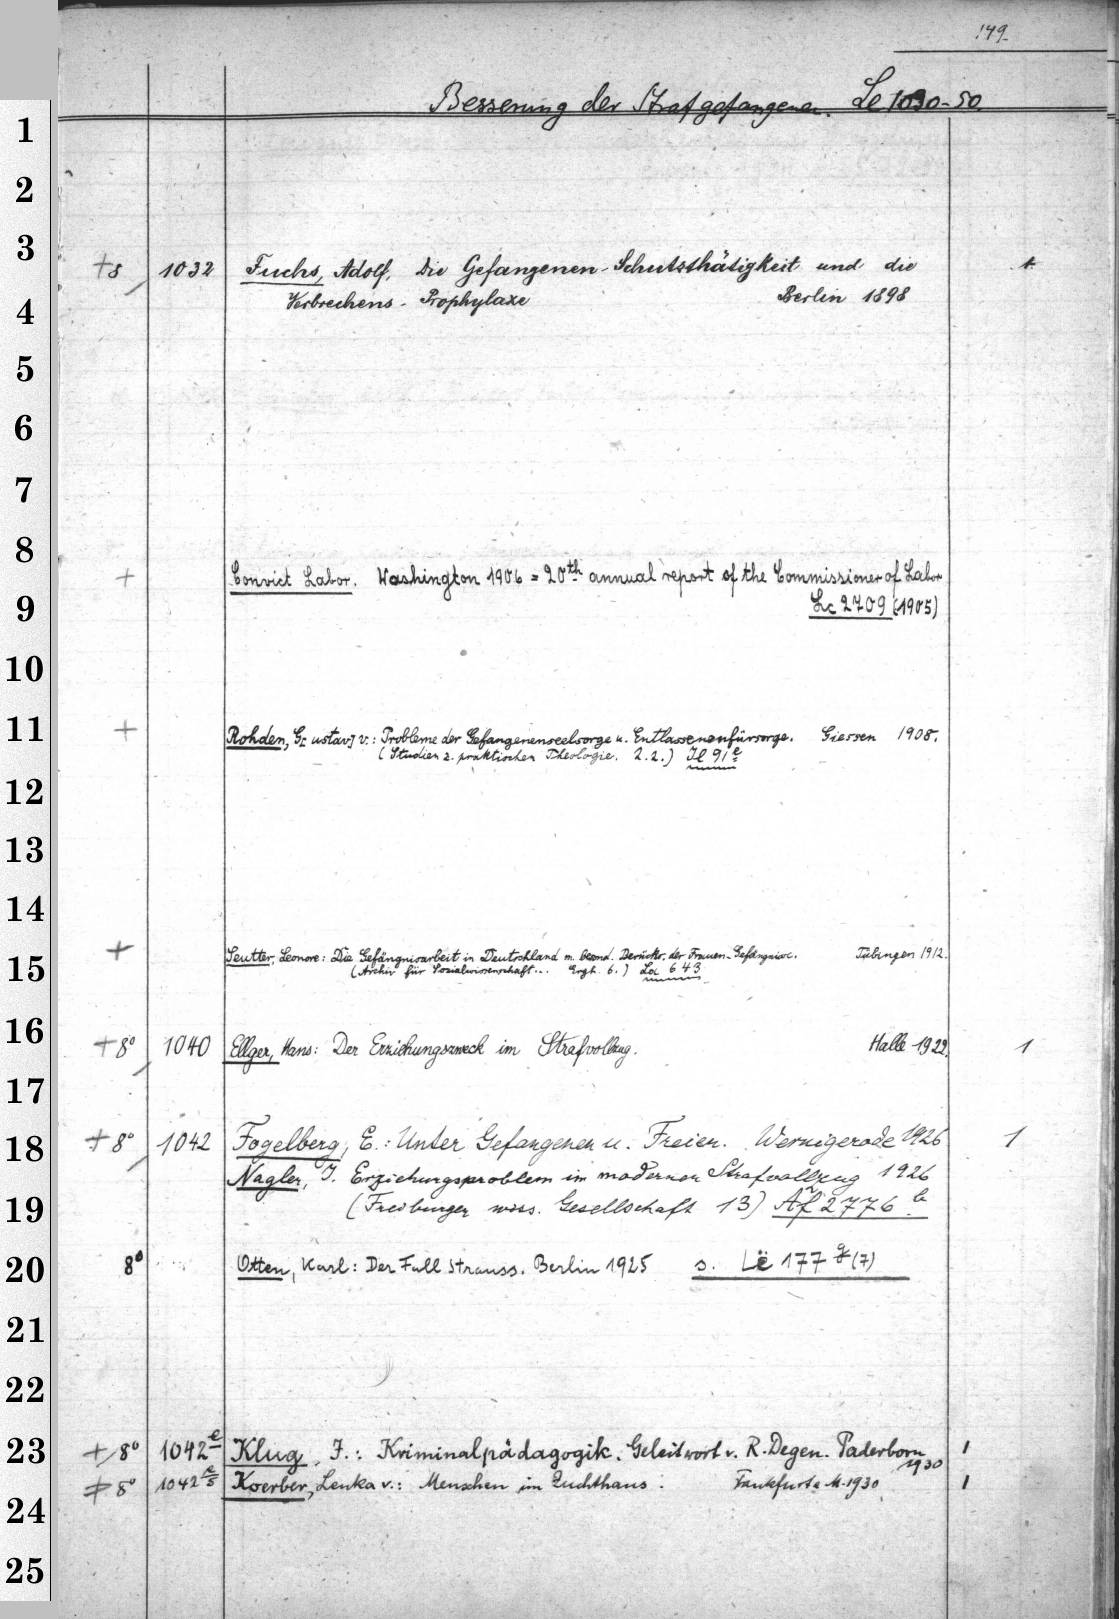 149.
Besserung der Strafgefangenen. Le 1030-50.
1
2
3
+8 1032 Fuchs, Adolf, Die Gefangenen-Schutzthätigkeit und die 1
4
Verbrechens-Prophylaxe Berlin 1898
5
6
7
8
+ Convict Labor. Washington 1906 = 20th annual report of the Commissioner of Labor
9
Lc 2709 (1905)
10
11
+ Rohden, G[ustav] v.: Probleme der Gefangenenseelsorge u. Entlassenenfürsorge. Giessen 1908.
(Studien z. praktischen Theologie. 2.2.) Il 91e
12
13
14
+ Seutter, Leonore: Die Gefängnisarbeit in Deutschland m. besond. Berücks. der Frauen-Gefängnisse. Tübingen 1912.
15
(Archiv für Sozialwissenschaft... Ergh. 6.) La 643
16
+8° 1040 Ellger, Hans: Der Erziehungszweck im Strafvollzug. Halle 1922. 1
17
18
+8° 1042 Fogelberg, E.: Unter Gefangenen u. Freien. Wernigerode 1926 1
Nagler, J. Erziehungsproblem im modernen Strafvollzug 1926
19
(Freiburger wiss. Gesellschaft 13) Af 2776 b
20
8° Otten, Karl: Der Fall Strauss. Berlin 1925 s. Lë 177 g (7)
21
22
23
+8° 1042e Klug, J.: Kriminalpädagogik. Geleitwort v. R. Degen. Paderborn 1
1930
+8° 1042 Koerber, Lenka v.: Menschen im Zuchthaus. Frankfurt a. M. 1930 1
24
25